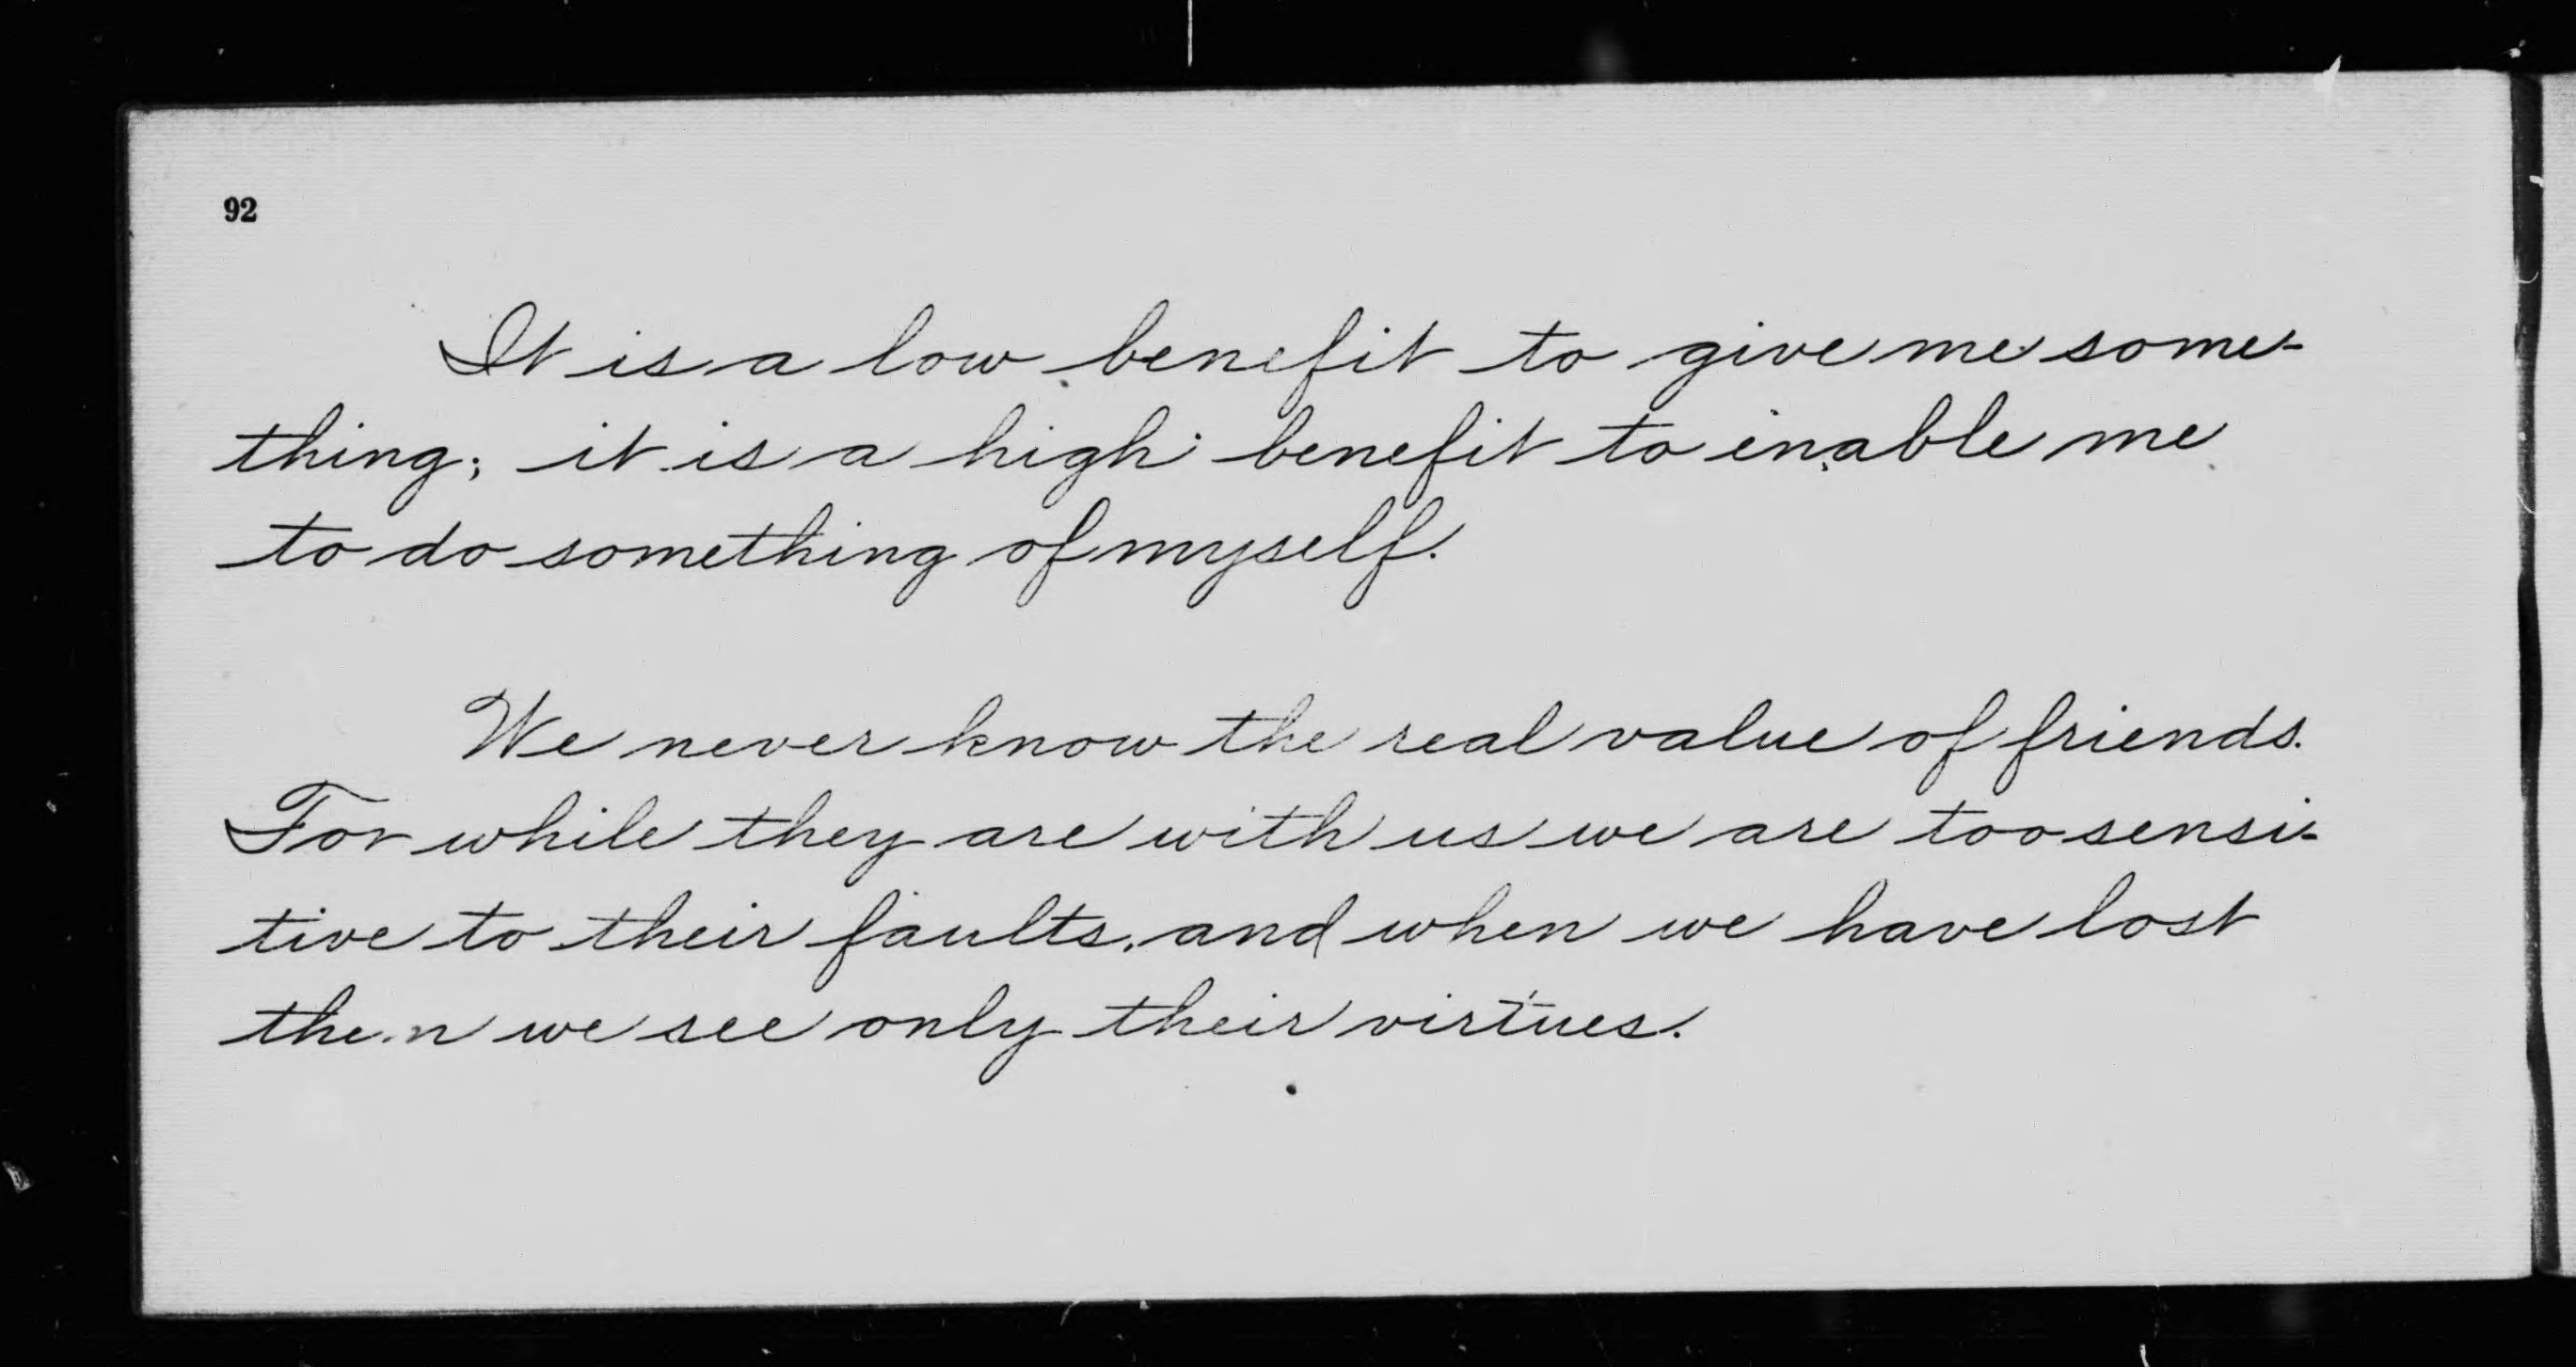 92
It is a low benefit to give me some-
thing; it is a high benefit to enable me
to do something of myself.
We never know the real value of friends.
For while they are with us we are too sensi-
tive to their faults, and when we have lost
then we see only their virtues.